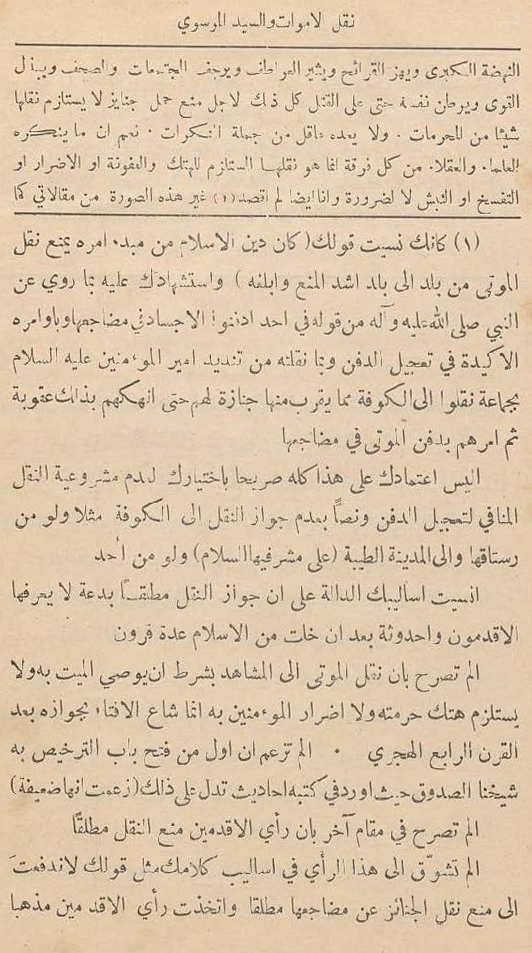 نقل الاموات والسيد الموسوي
النهضة الكبرى ويهز القرائح ويثير العواطف ويرجف المجتمعات والصحف ويبذل
القوى ويوطن نفسه حتى على القتل كل ذلك لاجل منع حمل جنايز لا يستلزم نقلها
شيئا من المحرمات . ولا يعده عاقل من جملة المنكرات . نعم ان ما ينكره
العلماء والعقلاء من كل فرقة انما هو نقلها المستلزم للهتك والعفونة او الاضرار او
التفسخ او النبش لا لضرورة وانا ايضا لم اقصد (١) غير هذه الصورة من مقالاتي كما
(١) كانك نسيت قولك ( كان دين الاسلام من مبدء امره يمنع نقل
الموتى من بلد الى بلد اشد المنع وابلغه ) واستشهادك عليه بما روي عن
النبي صلى الله عليه وآله من قوله في احد ادفنوا الاجساد في مضاجعها وباوامره
الاكيدة في تعجيل الدفن وبما نقلته من تنديد امير الموءمنين عليه السلام
بجماعة نقلوا الى الكوفة مما يقرب منها جنازة لهم حتى انهكهم بذلك عقوبة
ثم امرهم بدفن الموتى في مضاجعها
اليس اعتمادك على هذا كله صريحا باختيارك لعدم مشروعية النقل
المنافي لتعجيل الدفن ونصاً بعدم جواز النقل الى الكوفة مثلا ولو من
رستاقها والى المدينة الطيبة (على مشرفيها السلام) ولو من اُحد
انسيت اساليبك الدالة على ان جواز النقل مطلقاً بدعة لا يعرفها
الاقدمون واحدوثة بعد ان خلت من الاسلام عدة قرون
الم تصرح بان نقل الموتى الى المشاهد بشرط ان يوصي الميت به ولا
يستلزم هتك حرمته ولا اضرار الموءمنين به انما شاع الافتاء بجوازه بعد
القرن الرابع الهجري . الم تزعم ان اول من فتح باب الترخيص به
شيخنا الصدوق حيث اورد في كتبه احاديث تدل على ذلك (زعمت انها ضعيفة)
الم تصرح في مقام آخر بان رأي الاقدمين منع النقل مطلقاً
الم تشوّق الى هذا الرأي في اساليب كلامك مثل قولك لاندفعتَ
الى منع نقل الجنائز عن مضاجعها مطلقا واتخذت رأي الاقدمين مذهبا